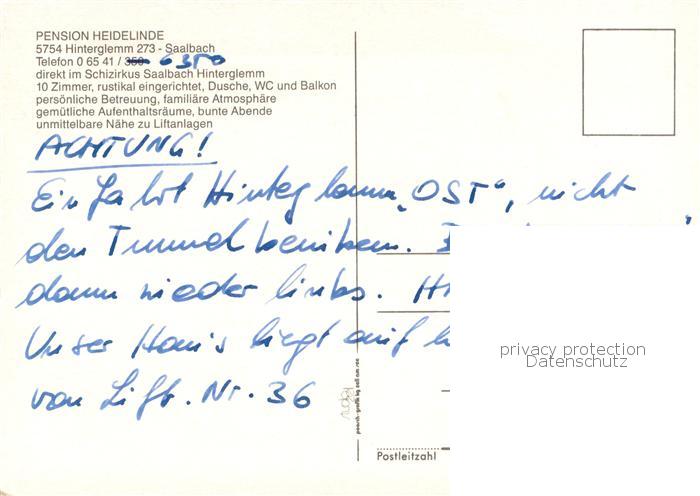 PENSION HEIDELINDE
5754 Hinterglemm 273 - Saalbach
Telefon 0 65 41 / 350 6350
direkt im Schizirkus Saalbach Hinterglemm
10 Zimmer, rustikal eingerichtet, Dusche, WC und Balkon
persönliche Betreuung, familiäre Atmosphäre
gemütliche Aufenthaltsräume, bunte Abende
unmittelbare Nähe zu Liftanlagen
ACHTUNG!
Einfahrt Hinterglemm „OST“, nicht
den Tunnel benützen.
dann wieder links. H
Unser Haus liegt auf
von Lift. Nr. 36
privacy protection
Datenschutz
Postleitzahl